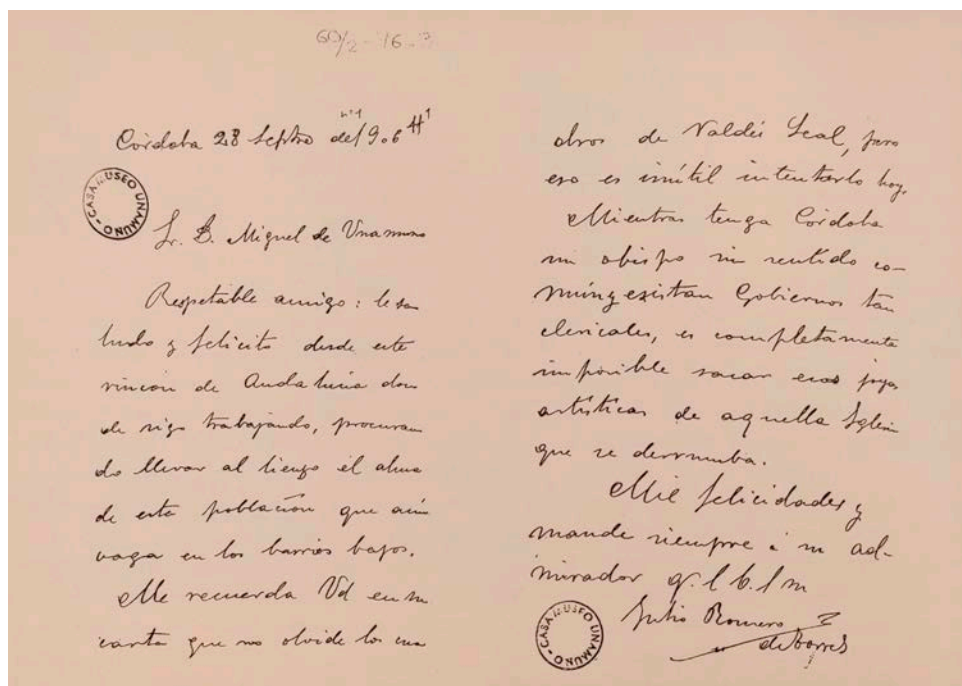 60/2 - 16
Córdoba 28 Septbre del 906
CASA MUSEO UNAMUNO
Sr. D. Miguel de Unamuno
Respetable amigo: le sa
ludo y felicito desde este
rincón de Andalucía don
de sigo trabajando, procuran
do llevar al lienzo el alma
de esta población que aún
vaga en los barrios bajos.
Me recuerda Vd en su
carta que no olvide los cua
dros de Valdés Leal, pero
eso es inútil intentarlo hoy.
Mientras tenga Córdoba
un obispo sin sentido co-
mún y existan Gobiernos tan
clericales, es completamente
imposible sacar esas joyas
artísticas de aquella Iglesia
que se derrumba.
Mil felicidades y
mande siempre á su ad-
mirador q. l b. l m
Julio Romero
de Torres
CASA MUSEO UNAMUNO